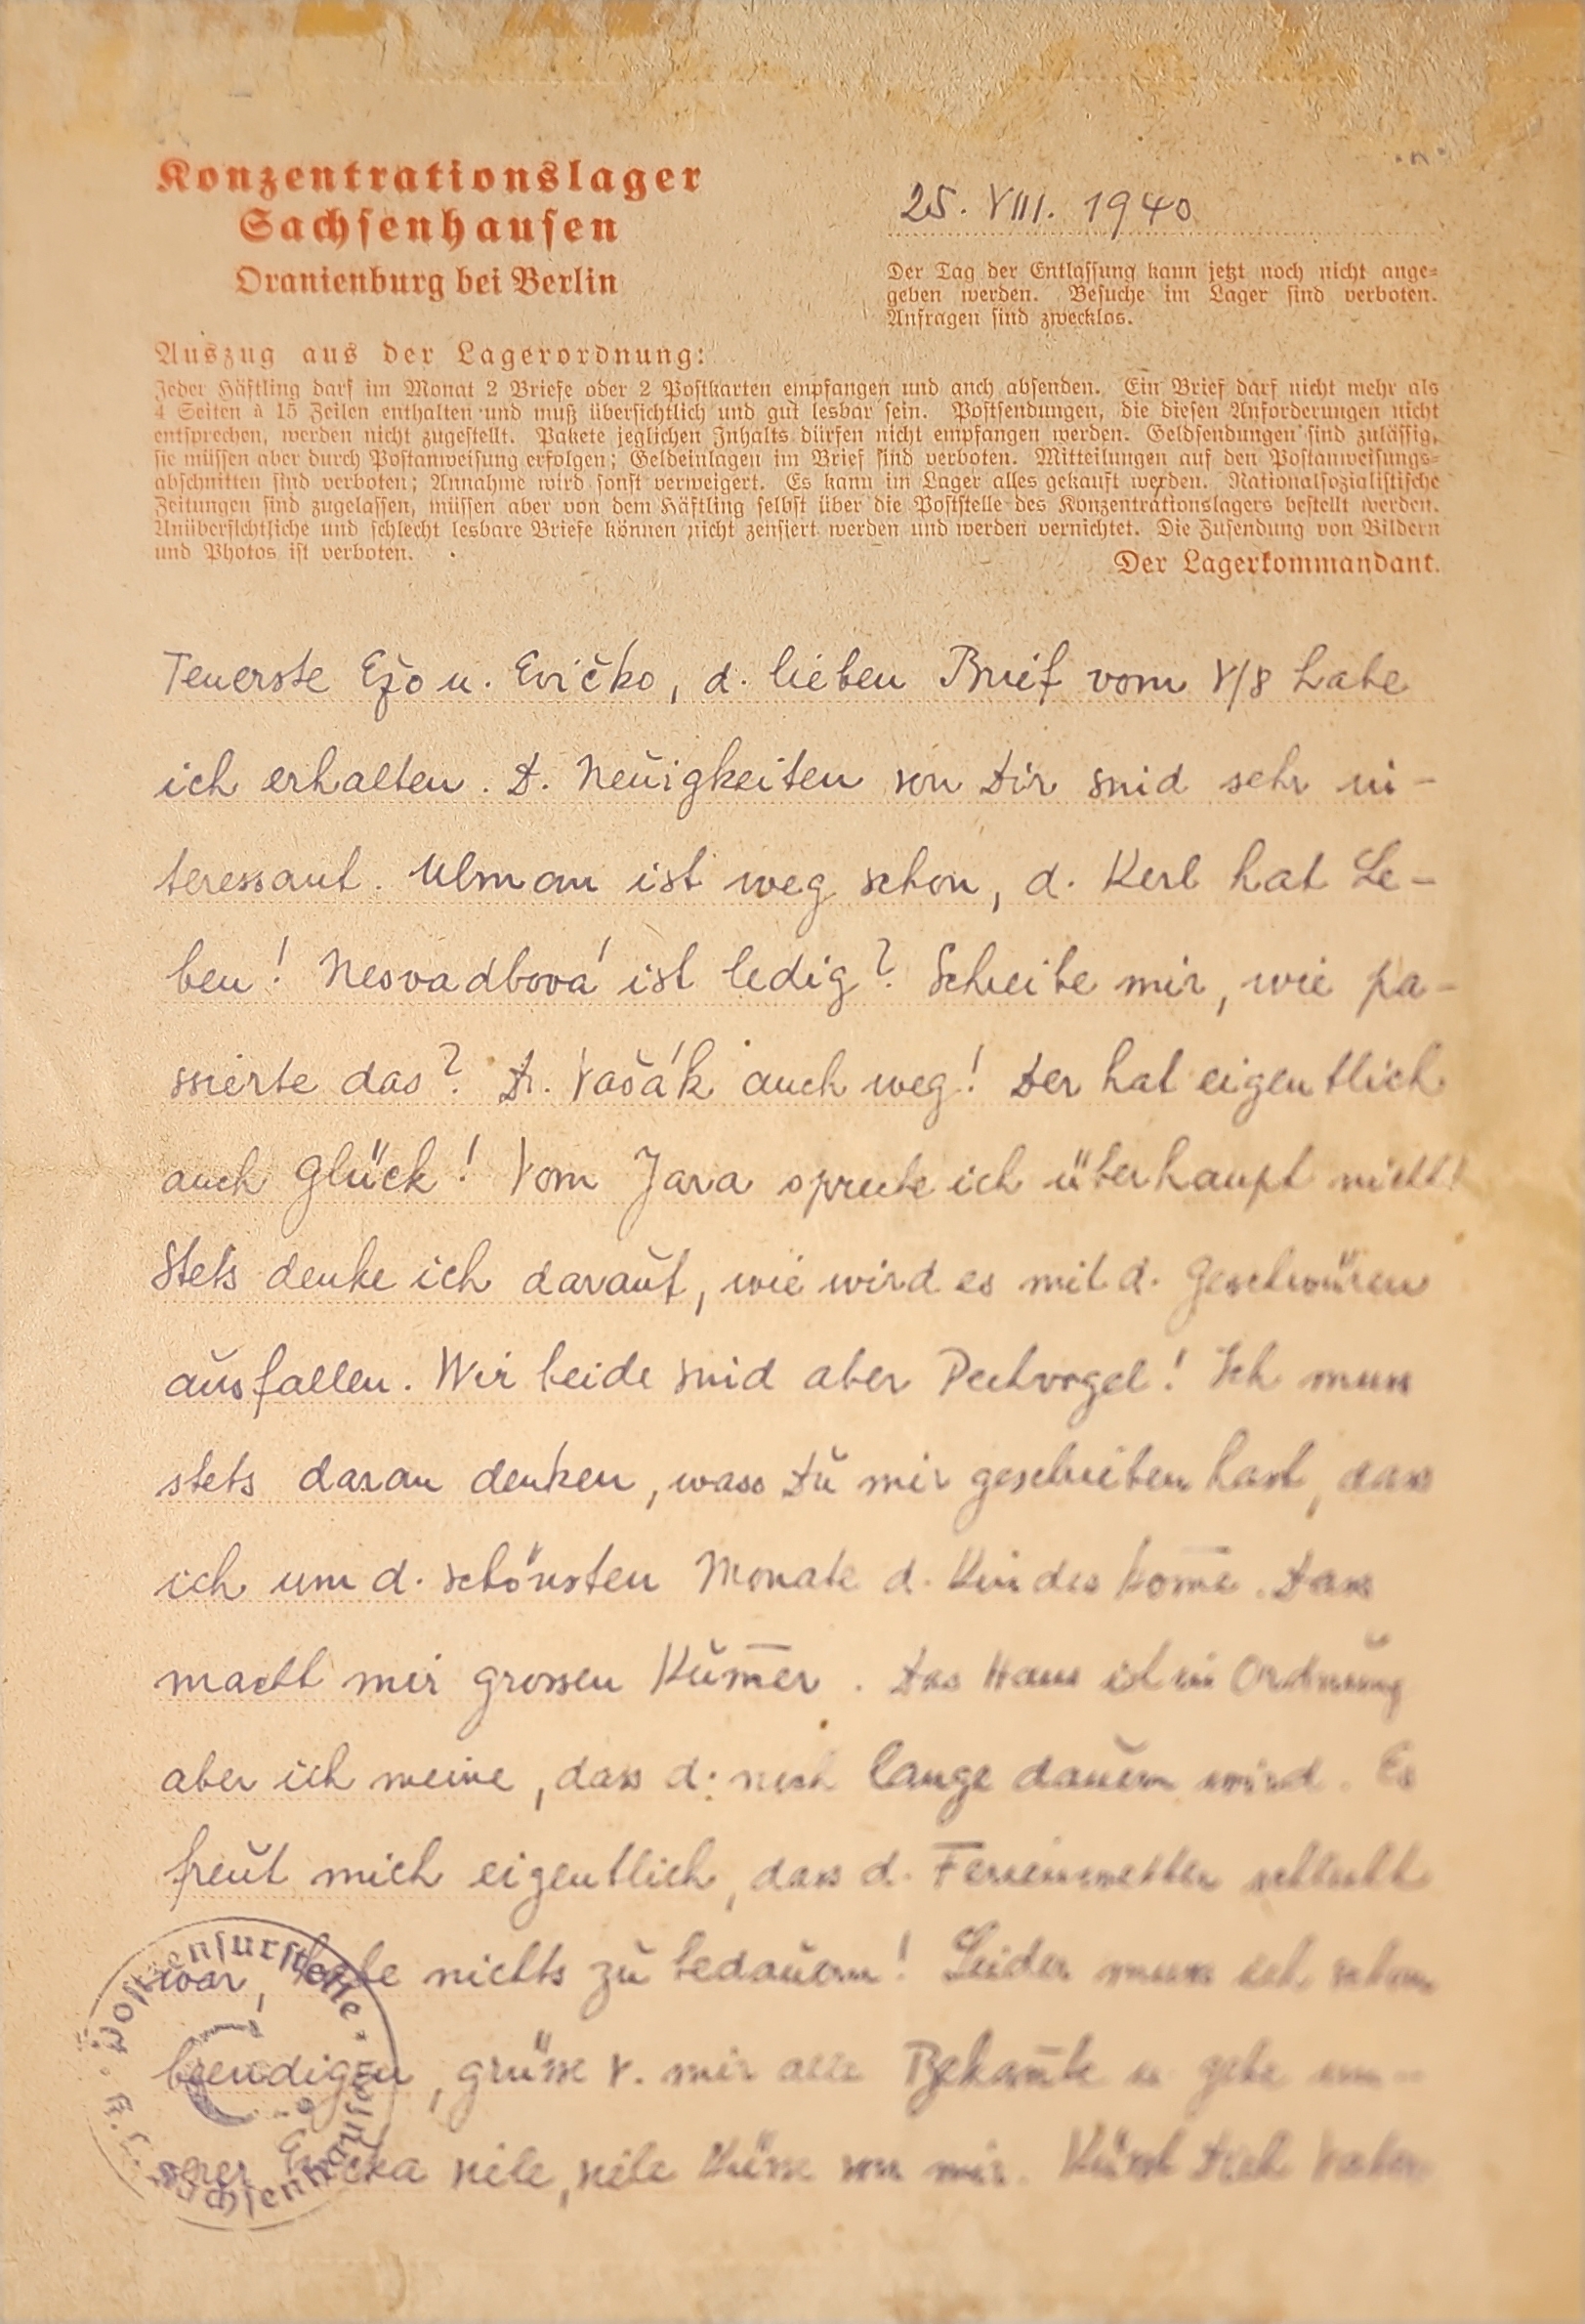 Konzentrationslager
Sachsenhausen
Oranienburg bei Berlin
25. VIII. 1940
Der Tag der Entlassung kann jetzt noch nicht ange-
geben werden. Besuche im Lager sind verboten.
Anfragen sind zwecklos.
Auszug aus der Lagerordnung:
Jeder Häftling darf im Monat 2 Briefe oder 2 Postkarten empfangen und auch absenden. Ein Brief darf nicht mehr als
4 Seiten à 15 Zeilen enthalten und muß übersichtlich und gut lesbar sein. Postsendungen, die diesen Anforderungen nicht
entsprechen, werden nicht zugestellt. Pakete jeglichen Inhalts dürfen nicht empfangen werden. Geldsendungen sind zulässig,
sie müssen aber durch Postanweisung erfolgen; Geldeinlagen im Brief sind verboten. Mitteilungen auf den Postanweisungs-
abschnitten sind verboten; Annahme wird sonst verweigert. Es kann im Lager alles gekauft werden. Nationalsozialistische
Zeitungen sind zugelassen, müssen aber von dem Häftling selbst über die Poststelle des Konzentrationslagers bestellt werden.
Unübersichtliche und schlecht lesbare Briefe können nicht zensiert werden und werden vernichtet. Die Zusendung von Bildern
und Photos ist verboten.
Der Lagerkommandant.
Teuerste Ežo u. Evičko, d. lieben Brief vom V/8 habe
ich erhalten. D. Neuigkeiten von Dir sind sehr in-
teressant. Ulman ist weg schon, d. Kerl hat Le-
ben! Nesvadbová ist ledig? Schreibe mir, wie pa-
ssierte das? Dr. Vašák auch weg! Der hat eigentlich
auch Glück! Vom Jara spreche ich überhaupt nicht!
Stets denke ich darauf, wie wird es mit d. Geschwüren
ausfallen. Wir beide sind aber Pechvogel! Ich muss
stets daran denken, wass Du mir geschrieben hast, dass
ich um d. schönsten Monate d. Kindes kom̄e. Dass
macht mir grossen Kum̄er. Das Haus ist in Ordnung
aber ich meine, dass d. noch lange dauern wird. Es
freut mich eigentlich, dass d. Ferienwetter schlecht
war, habe nichts zu bedauern! Leider muss ich schon
beendigen, grüsse v. mir alle Bekan̄te u. gebe un-
serer Evička viele, viele Küsse von mir. Küsst Dich
Postzensurstelle
K.L. Sachsenhausen